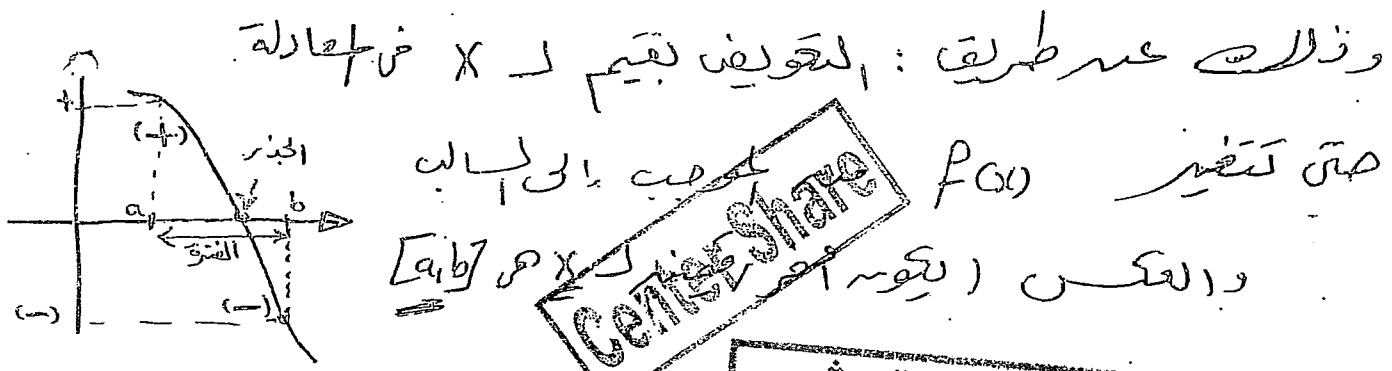 وذلك عن طريق : التعويض بقيم لـ X في المعادلة
حتى تتغير f(x) الموجب إلى السالب
والعكس ( يكون لـ X هي [a,b]
Center Share
+
(+)
الجذر
a
b
الفترة
(-)
(-)